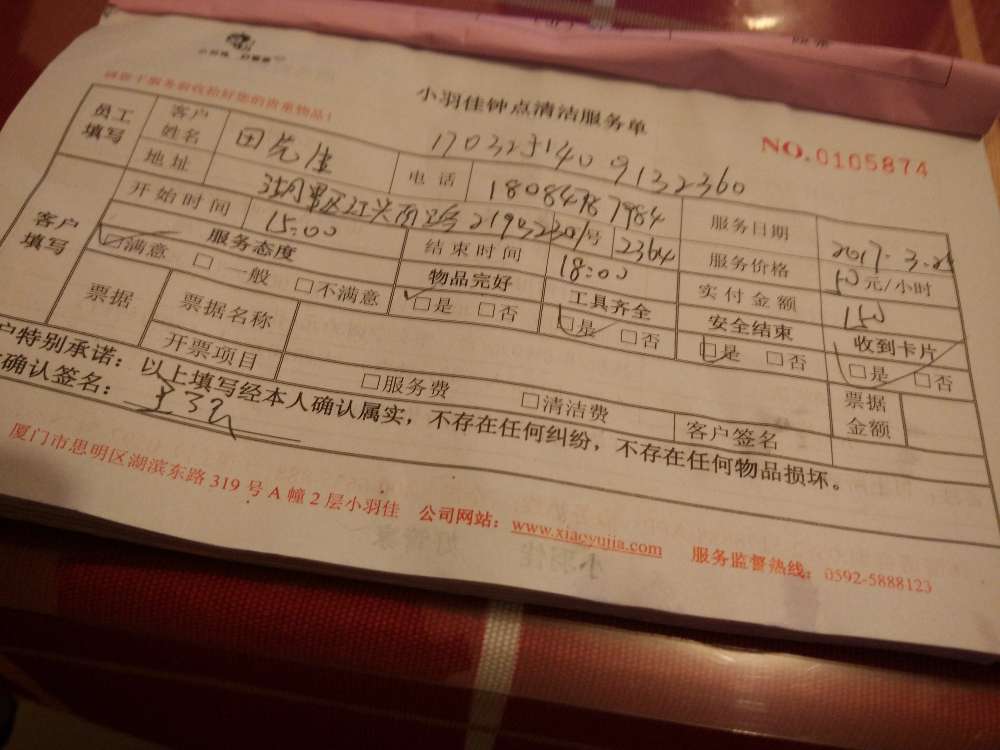 请您于服务前收拾好您的贵重物品!
小羽佳钟点清洁服务单
NO.0105874
170323140 9132360
员工填写 客户姓名 田先生 电话 18084987984 服务日期 2017.3.25
地址 2364 服务价格 50元/小时
开始时间 15:00 结束时间 18:00 实付金额 150
客户填写 服务态度 物品完好 工具齐全 安全结束 收到卡片
☑满意 □一般 □不满意 ☑是 □否 ☑是 □否 ☑是 □否 ☑是 □否
票据 票据名称 票据金额
开票项目 □服务费 □清洁费 客户签名
户特别承诺:以上填写经本人确认属实,不存在任何纠纷,不存在任何物品损坏。
确认签名:
厦门市思明区湖滨东路319号A幢2层小羽佳 公司网站:www.xiaoyujia.com 服务监督热线:0592-5888123